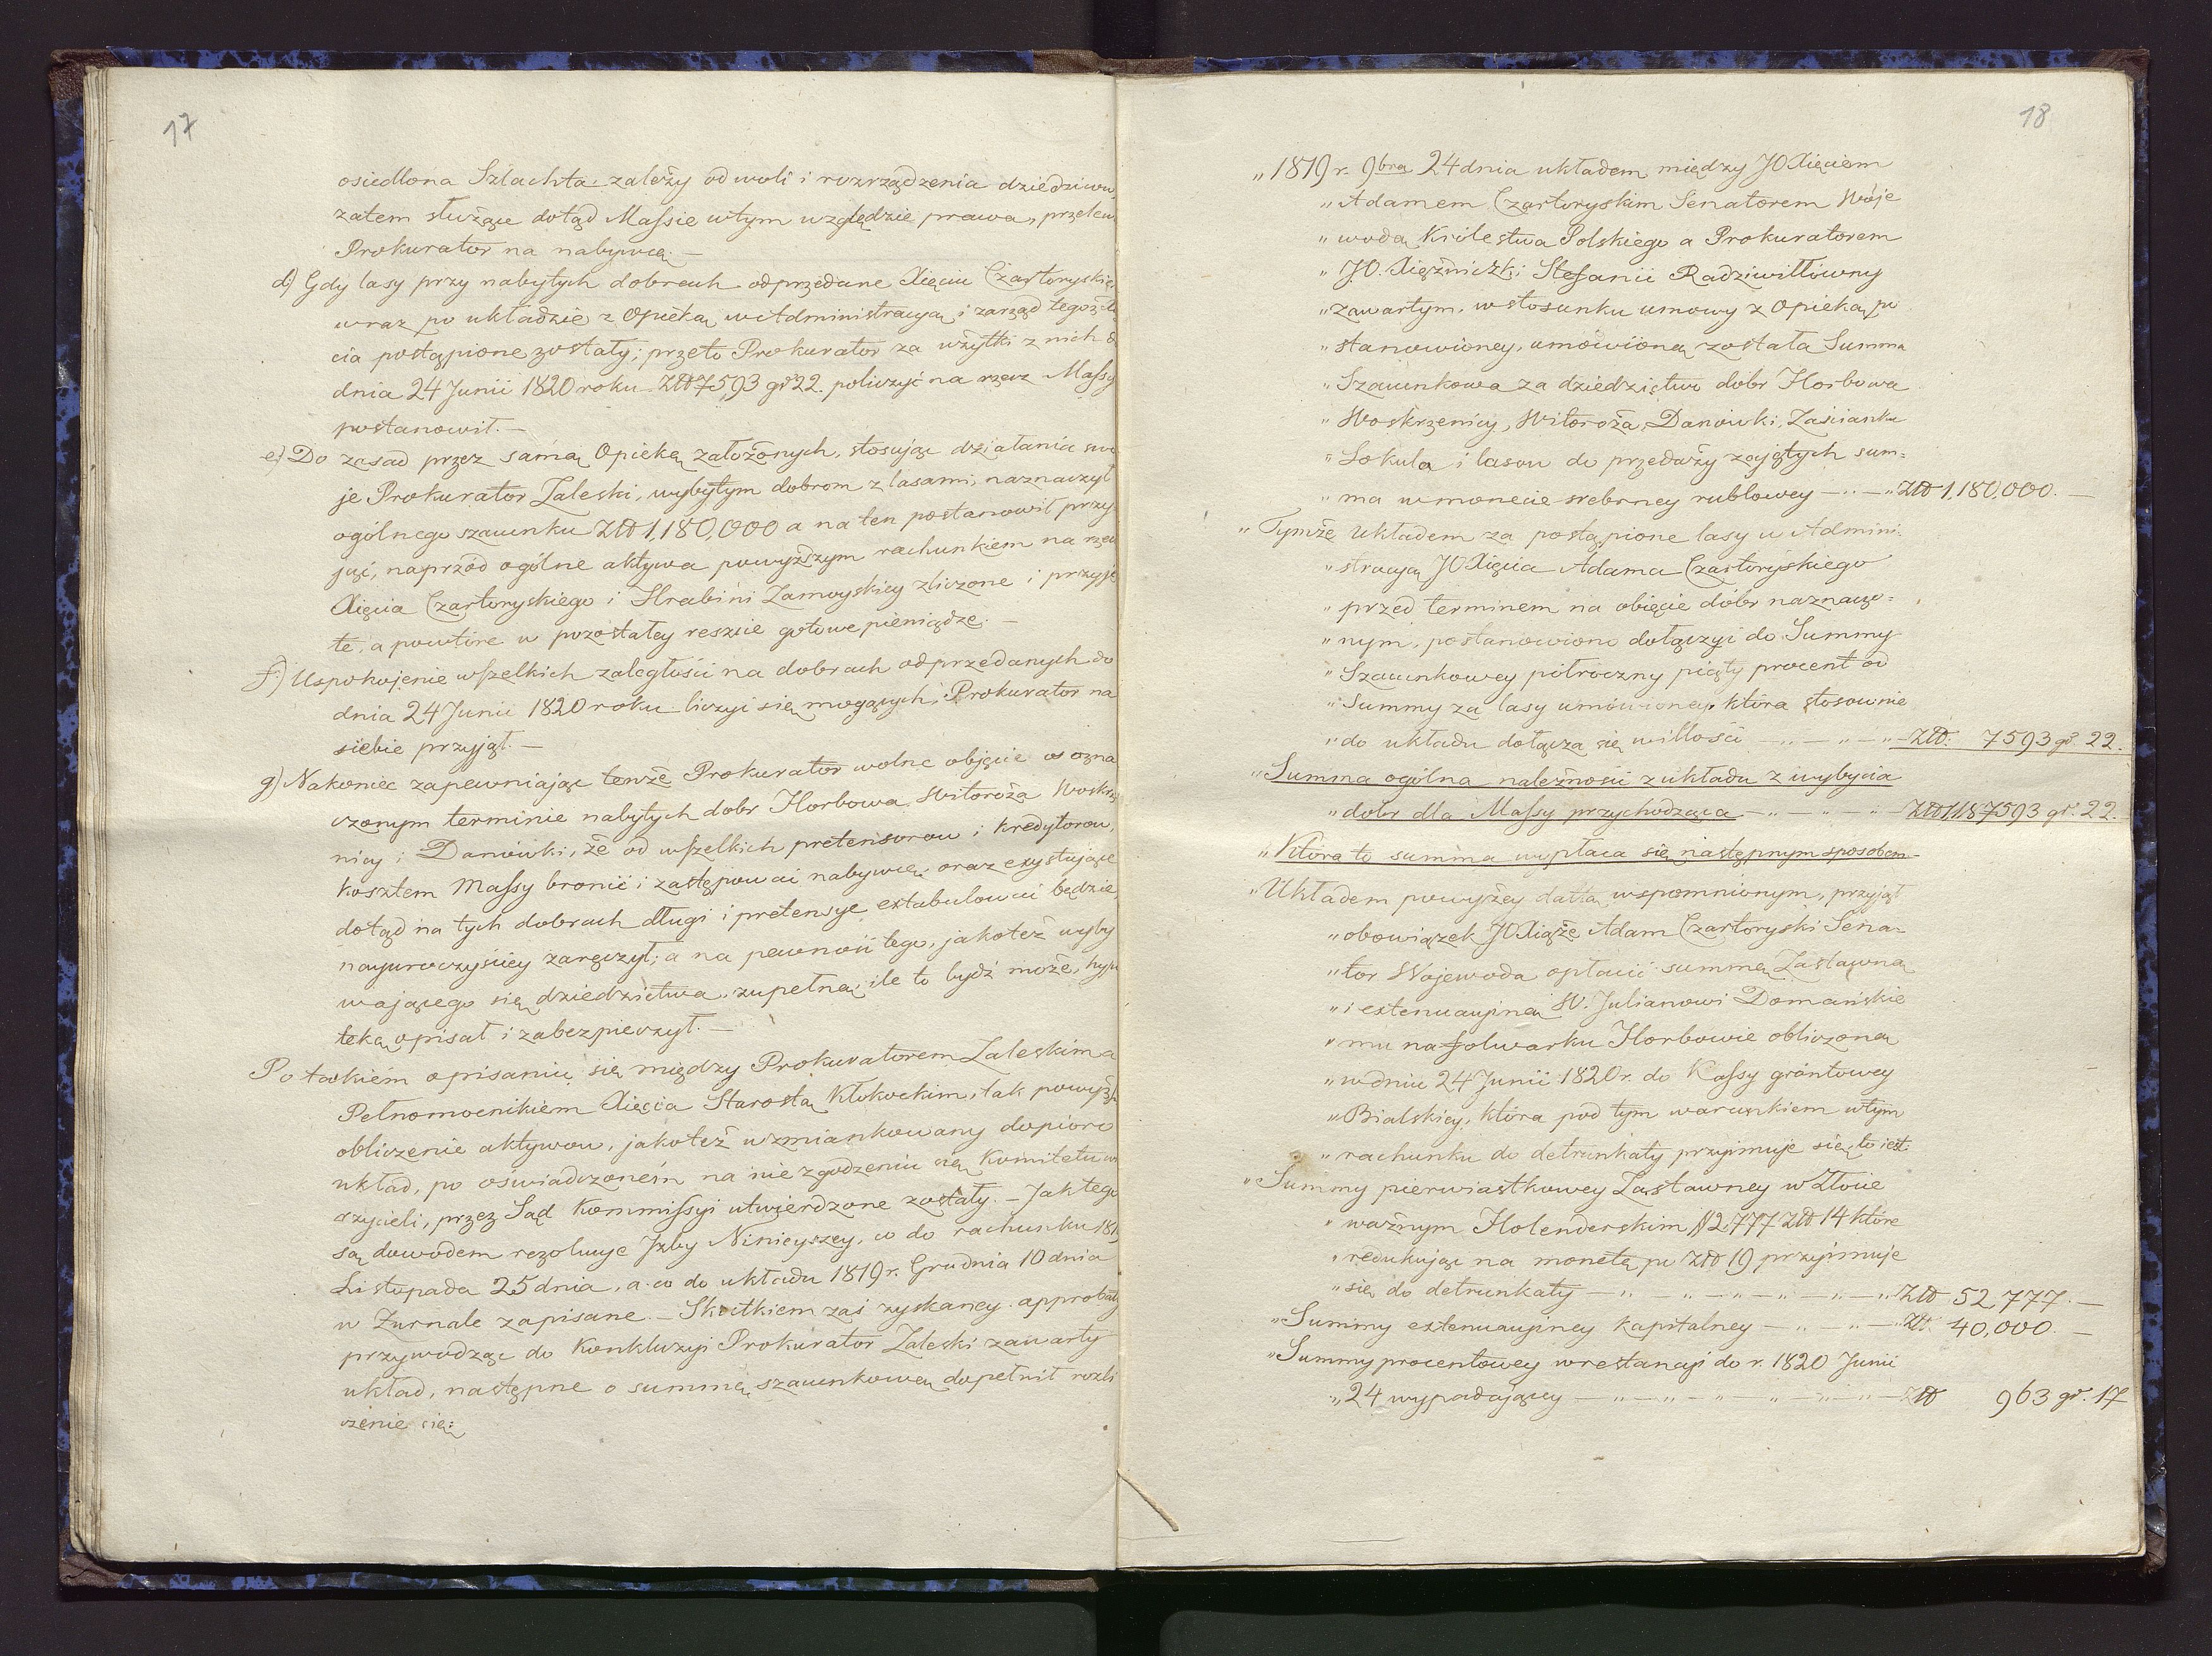 17
osiedlona Szlachta zależy od woli i rozrządzenia dziedziców
zatem służące dotąd Massie wtym względzie prawa, przelew
Prokurator na nabywcę.—
d) Gdy lasy przy nabytych dobrach odprzedane Xięciu Czartoryskie
wraz po układzie z Opieką w Administracyą i zarząd tegoż
cia postąpione zostały; przeto Prokurator za użytki z nich
dnia 24 Junii 1820 roku Złł 7,593 gr 22. policzyć na rzecz Massy
postanowił.—
e) Do zasad przez samą Opiekę założonych, stosując działania swo
je Prokurator Zaleski, wybytym dobrom z lasami, naznaczył
ogólnego szacunku Złł 1,180,000 a na ten postanowił przy
jąć, naprzód ogólne aktywa powyższym rachunkiem na rzecz
Xięcia Czartoryskiego i Hrabini Zamoyskiey zliczone i przyję
te, a powtóre w pozostałey reszcie gotowe pieniądze.—
f) Uspokojenie wszelkich zaległości na dobrach odprzedanych do
dnia 24 Junii 1820 roku liczyć się mogących, Prokurator na
siebie przyjął.—
g) Nakoniec zapewniając tenże Prokurator wolne objęcie w ozna
czonym terminie nabytych dobr Horbowa Witoroża Woskrze
nicy i Danówki, że od wszelkich pretensorow i kredytorow,
kosztem Massy bronić i zastępować nabywcę, oraz exystujące
dotąd na tych dobrach długi i pretensye extabulować będzie,
nayuroczyściey zaręczył; a na pewność tego, jakoteż wyby
wającego się dziedzictwa, zupełną, ile to bydź może, hypo
tekę opisał i zabezpieczył.—
Po takiém opisaniu się między Prokuratorem Zaleskim a
Pełnomocnikiem Xięcia Starostą Kłokockim, tak powyższe
obliczenie aktywow, jakoteż wzmiankowany dopiéro
układ, po oświadczoném na nie zgodzeniu się Komitetu wie
rzycieli, przez Sąd Kommissyi utwierdzone zostały.— Jak tego
są dowodem rezolucye Izby Ninieyszey, co do rachunku 1819
Listopada 25 dnia, a co do układu 1819 r. Grudnia 10 dnia
w Żurnale zapisane.— Skutkiem zaś zyskaney approbaty
przywodząc do Konkluzyi Prokurator Zaleski zawarty
układ, następne o summę szacunkową dopełnił rozli
czenie się:
18
„1819 r. 9bra 24 dnia układem między JO Xięciem
„Adamem Czartoryskim Senatorem Woje
„wodą Królestwa Polskiego a Prokuratorem
„JO. Xiężniczki Stefanii Radziwiłłówny
„zawartym, w stosunku umowy z Opieką po
„stanowioney, umówioną została Summa
„Szacunkowa za dziedzictwo dobr Horbowa
„Woskrzenicy, Witoroża, Danówki, Zaścianku
„Sokula i lasow do przedaży zajętych sum=
„ma w monecie srebrney rublowey —„—„Złł 1,180,000.—
„Tymże układem za postąpione lasy w Admini
„stracyą JO Xięcia Adama Czartoryskiego
„przed terminem na objęcie dóbr naznaczo=
„nym, postanowiono dołączyć do Summy
„Szacunkowey półroczny piąty procent od
„Summy za lasy umówioney, która stosownie
„do układu dołącza się w illości —„—„—„—Złł: 7593 gr. 22.
„Summa ogólna należności z układu z wybycia
„dobr dla Massy przychodząca —„—„—„ Złł 1,187593 gr. 22.
„Która to summa wypłaca się następnym sposobem
„Układem powyżey datą wspomnionym, przyjął
„obowiązek JO Xiąże Adam Czartoryski Sena=
„tor Wojewoda opłacić summę Zastawną
„i extenuacyiną W. Julianowi Domańskie
„mu na folwarku Horbowie obliczoną
„w dniu 24 Junii 1820 r. do Kassy gróntowey
„Bialskiey, która pod tym warunkiem wtym
„rachunku do detrunkaty przyimuje się, to iest:
„Summy pierwiastkowey Zastawney w Złocie
„ważnym Holenderskim # 2,777 Złł 14 które
„redukując na monetę po Złł 19 przyimuje
„się do detrunkaty —„—„—„—„—„—„Złł 52,777.—
„Summy extenuacyiney kapitalney —„—„—Złł. 40,000.—
„Summy procentowey w restancyi do r. 1820 Junii
„24 wypadającey —„—„—„—„—„— Złł 963 gr. 17